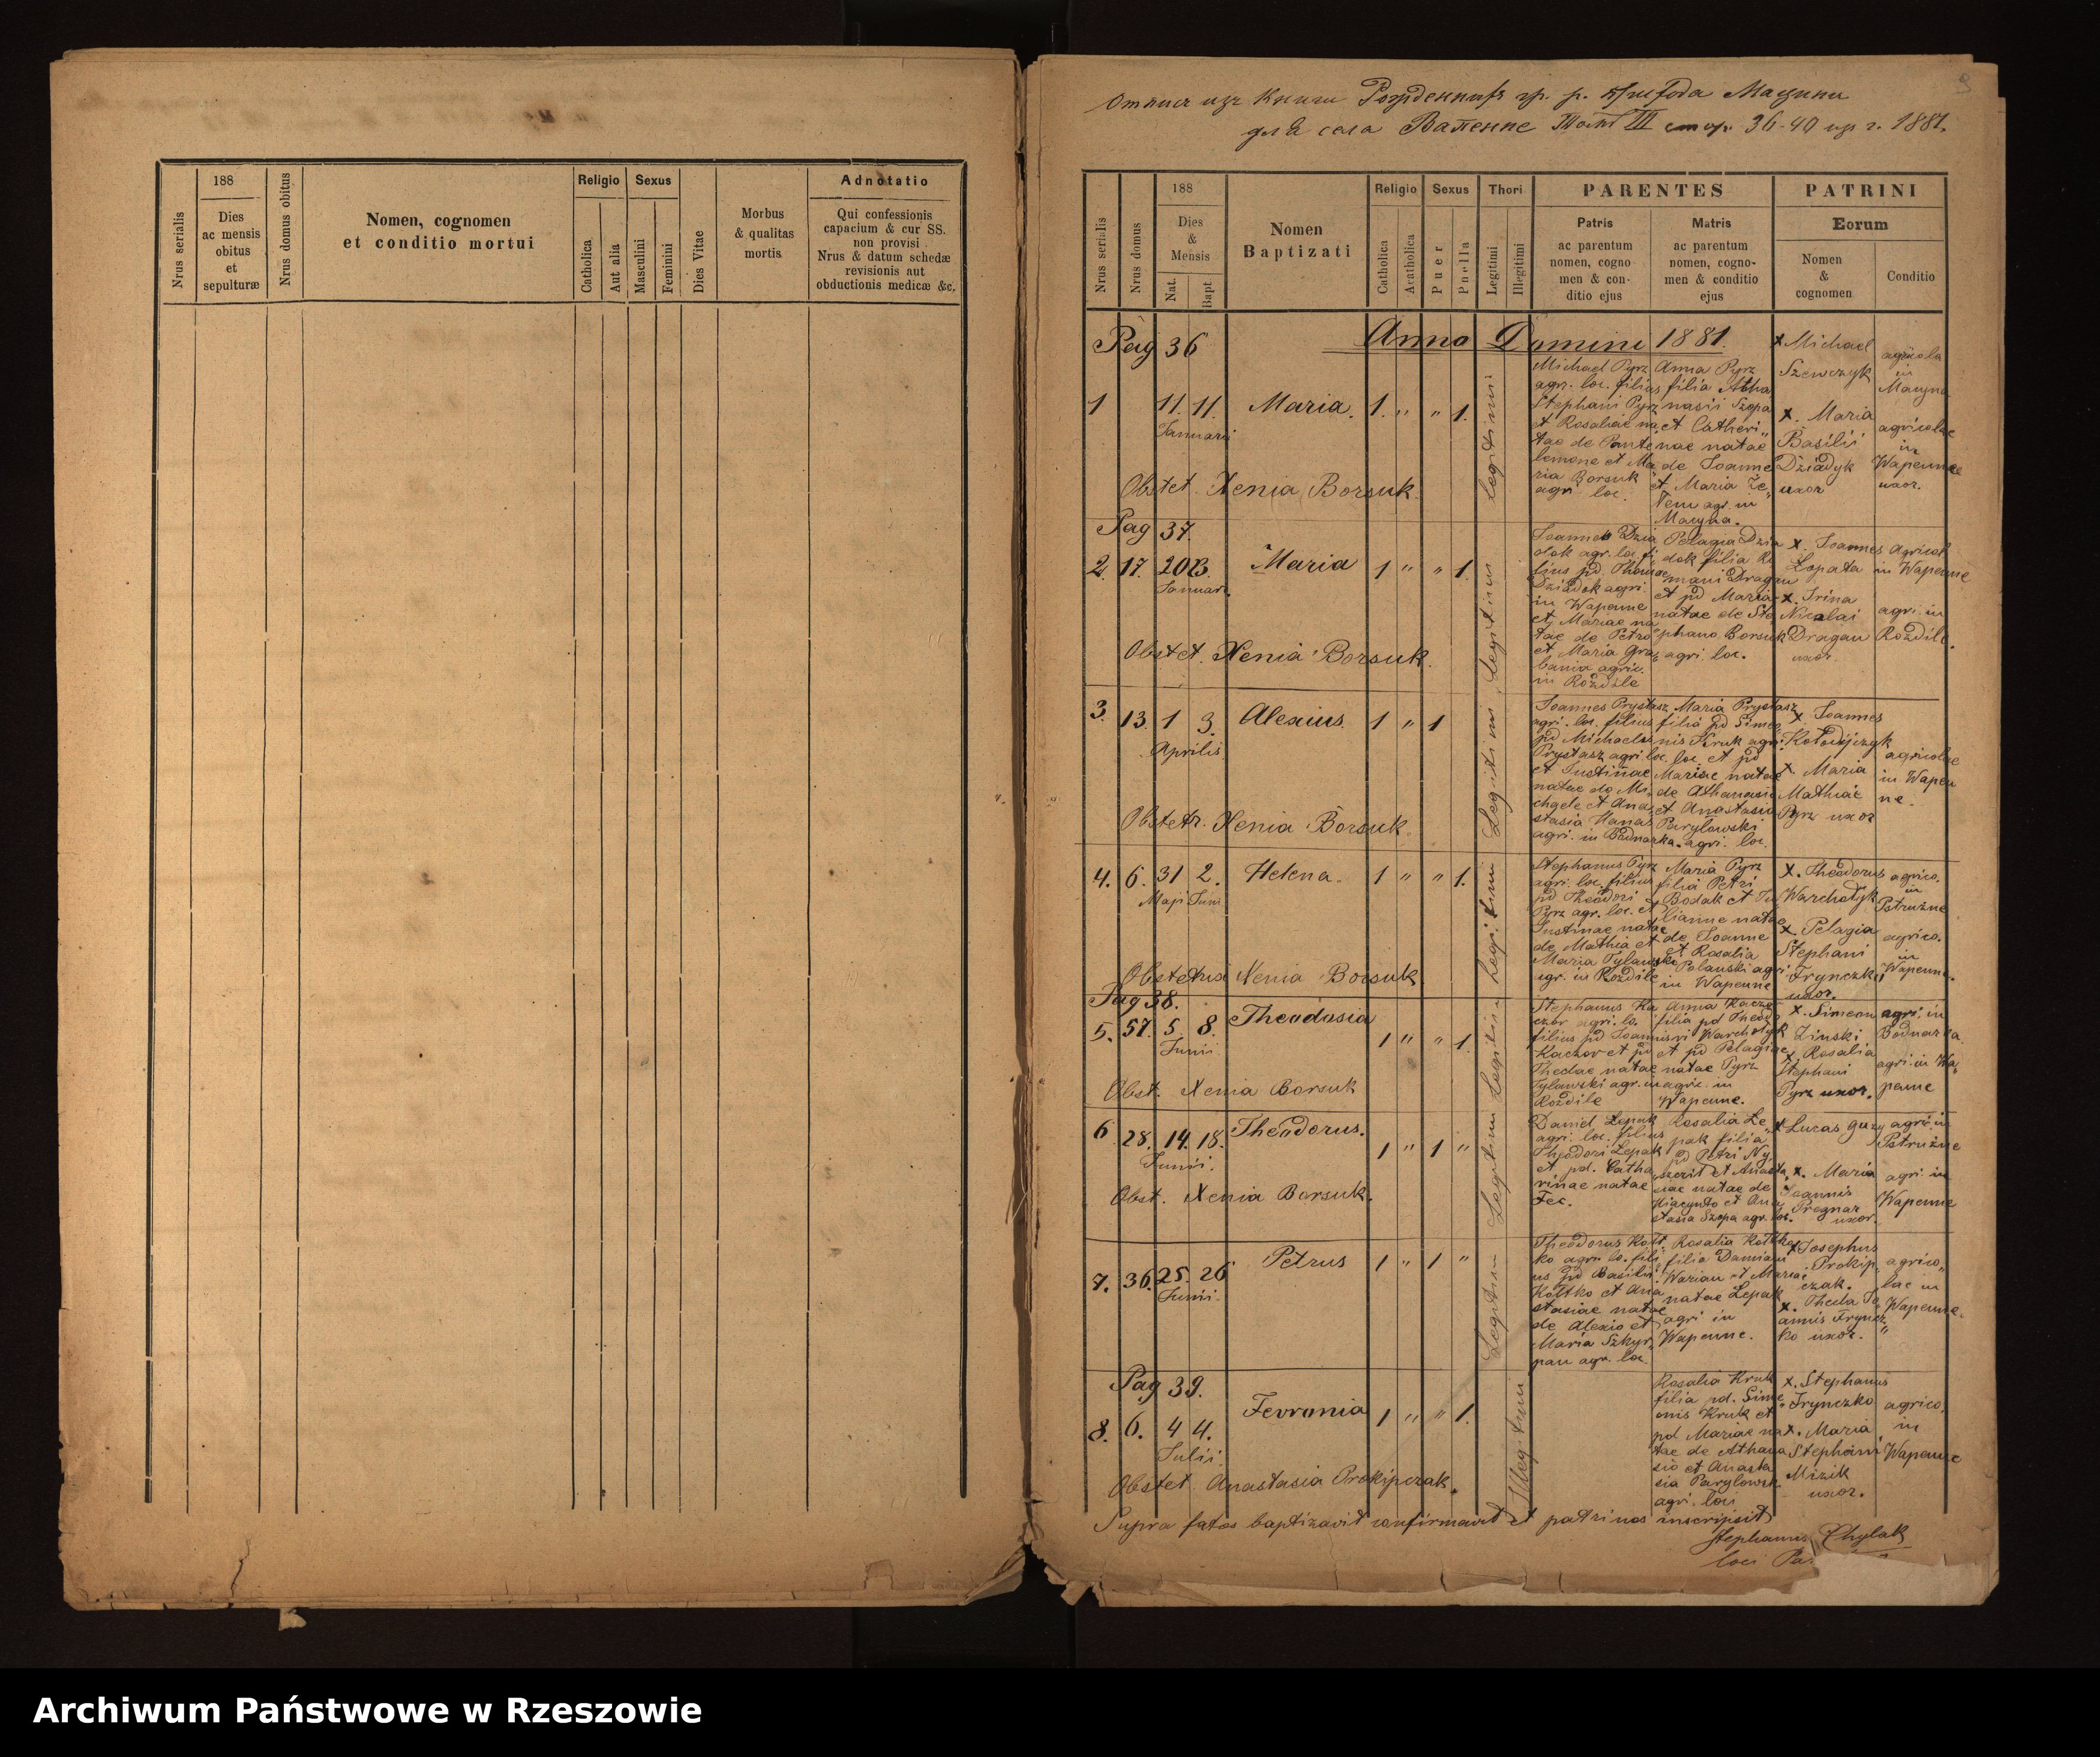 188
Religio
Sexus
Adnotatio
Nrus serialis
Dies
ac mensis
obitus
et
sepulturæ
Nrus domus obitus
Nomen, cognomen
et conditio mortui
Catholica
Aut alia
Masculini
Feminini
Dies Vitae
Morbus
& qualitas
mortis
Qui confessionis
capacium & cur SS.
non provisi
Nrus & datum schedæ
revisionis aut
obductionis medicæ &c.
9
для села Вапенне Томъ III стор. 36-40 из г. 1881.
Nrus serialis
Nrus domus
188
Dies
&
Mensis
Nat.
Bapt.
Nomen
Baptizati
Religio
Catholica
Acatholica
Sexus
Puer
Puella
Thori
Legitimi
Illegitimi
PARENTES
Patris
ac parentum
nomen, cogno-
men & con-
ditio ejus
Matris
ac parentum
nomen, cogno-
men & conditio
ejus
PATRINI
Eorum
Nomen
&
cognomen
Conditio
Pag 36
Anno Domini 1881.
1
11. 11.
Januarii
Maria.
1. " " 1.
legitimi
Michael Pyrz
agr. loc. filius
Stephani Pyrz
et Rosaliae na
tae de Pante
lemone et Ma
ria Borsuk
agri loc.
Anna Pyrz
filia Atha
nasii Szopa
et Catheri
nae natae
de Joanne
et Maria Ze
Tem agr. in
Macyna.
x Michael
Szewczyk
x. Maria
Basilii
Dziadyk
uxor
agricola
in
Macyna
agricolae
in
Wapenne
uxor.
Obstet. Xenia Borsuk.
Pag 37.
2. 17. 20
Januar.
Maria
1 " " 1.
Legitim
Joannes Dzia
dok agr. loc fi
lius pd Thomae
Dziadok agri
in Wapenne
et Mariae na
tae de Petro
et Maria Gra
bania agric.
in Rozdile
Pelagia Dzia
dok filia Ro
mani Dragan
et pd Mariae
natae de Ste
phano Borsuk
agri loc.
x. Joannes
Lopata
x. Irina
Nicolai
Dragan
uxor.
agricol
in Wapenne
agri. in
Rozdile.
Obstet. Xenia Borsuk.
3. 13. 1 3.
Aprilis
Alexius.
1 " 1
Legitimi
Joannes Prystasz
agri. loc. filius
pd Michaelis
Prystasz agri loc.
et Justinae
natae de Mi
chaele et Ana
stasia Hanas
agri. in Bednarka.
Maria Prystasz
filia pd Simeo
nis Kruk agri.
loc. et pd
Mariae natae
de Athanasio
et Anastasia
Parylowski
agri. loc.
x. Joannes
Kołodijczyk
x. Maria
Mathiae
Pyrz uxor
agricolae
in Wapen
ne.
Obstetr. Xenia Borsuk.
4. 6. 31 2.
Maji Juni
Helena.
1 " " 1.
Legitimi
Stephanus Pyrz
agri. loc. filius
pd Theodori
Pyrz agr. loc. et
Justinae natae
de Mathia et
Maria Tylawski
agr. in Rozdile
Maria Pyrz
filia Petri
Bodak et Ju
lianne natae
de Joanne
et Rosalia
Polanski agri
in Wapenne
x. Theodorus
Warcholyk
x. Pelagia
Stephani
Frynczko
uxor.
agrico.
in
Pstruzne
agrico.
in
Wapenne.
Obstetrix Xenia Borsuk
Pag 38.
5. 57. 5. 8.
Junii
Theodosia
1 " " 1.
Legitim
Stephanus Ka
czor agri. lo.
filius pd Joannis
Kaczor et pd
Theclae natae
Tylawski agr. in
Rozdile
Anna Kaczor
filia pd Theod
ori Warcholyk
et pd Pelagiae
natae Pyrz
agric. in
Wapenne.
x. Simeon
Zinski
x. Rosalia
Stephani
Pyrz uxor.
agri. in
Bednarka.
agri. in Wa
penne
Obst. Xenia Borsuk
6 28. 14. 18.
Junii.
Theodorus.
1 " 1 "
Legitim
Daniel Lepak
agri. loc. filius
Theodori Lepak
et pd. Catha
rinae natae
Fec.
Rosalia Le
pak filia
pd Petri Ny
szczit et Anasta
siae natae de
Hiacynto et Ana
stasia Szopa agr. loc.
x Lucas Guzy
x. Maria
Joannis
Pregnar
uxor.
agric. in
Pstruzne
agri in
Wapenne
Obst. Xenia Borsuk.
7. 36. 25. 26
Junii.
Petrus
1 " 1 "
Legitim
Theodorus Kolt
ko agri lo. fili
us pd Basilii
Koltko et Ana
stasiae natae
de Alexio et
Maria Szkyr
pan agr. loc.
Rosalia Koltko
filia Damiani
Warian et Mariae
natae Lepak
agri in
Wapenne.
x Josephus
Prokip
czak.
x. Thecla Jo
annis Frync
ko uxor.
agrico
lae in
Wapenne.
Pag 39.
8. 6. 4 4.
Julii.
Fevronia
1 " " 1.
Illegitim
Rosalia Kruk
filia pd. Sime
onis Kruk et
pd Mariae na
tae de Athana
sio et Anasta
sia Parylowski
agri. loci
x. Stephanus
Frynczko
x. Maria
Stephani
Mizik
uxor.
agrico.
in
Wapenne
Obstet. Anastasia Prokipczak.
Supra fatos baptizavit confirmavit et patrinos inscripsit
Stephanus Chylak
loci
Archiwum Państwowe w Rzeszowie